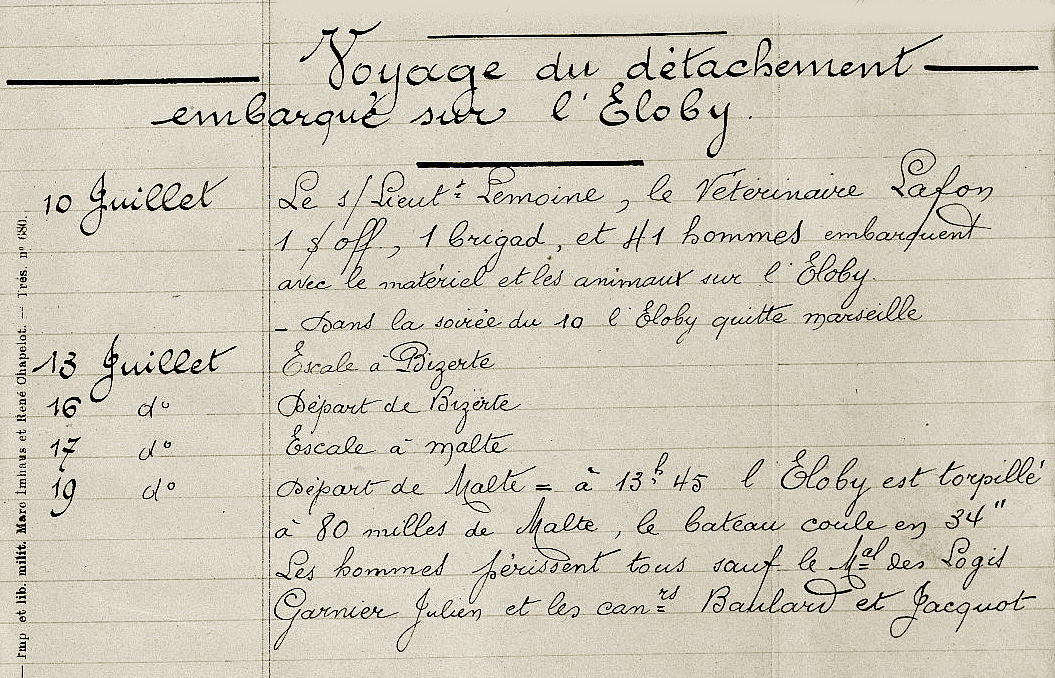 Voyage du détachement
embarqué sur l'Éloby.
10 Juillet Le s/Lieut<sup>t</sup> Lemoine, le Vétérinaire Lafon
1 s/off., 1 brigad, et 41 hommes embarquent
avec le matériel et les animaux sur l'Éloby.
- Dans la soirée du 10 l'Éloby quitte marseille
13 Juillet Escale à Bizerte
16 d° Départ de Bizerte
17 d° Escale à malte
19 d° Départ de Malte = à 13<sup>h</sup>45 l'Éloby est torpillé
à 80 milles de Malte, le bateau coule en 34"
Les hommes périssent tous sauf le M<sup>al</sup> des Logis
Garnier Julien et les can<sup>rs</sup> Baulard et Jacquot
— Imp et lib. milit. Marc Imhaus et René Chapelot. — Tres. n° 680.